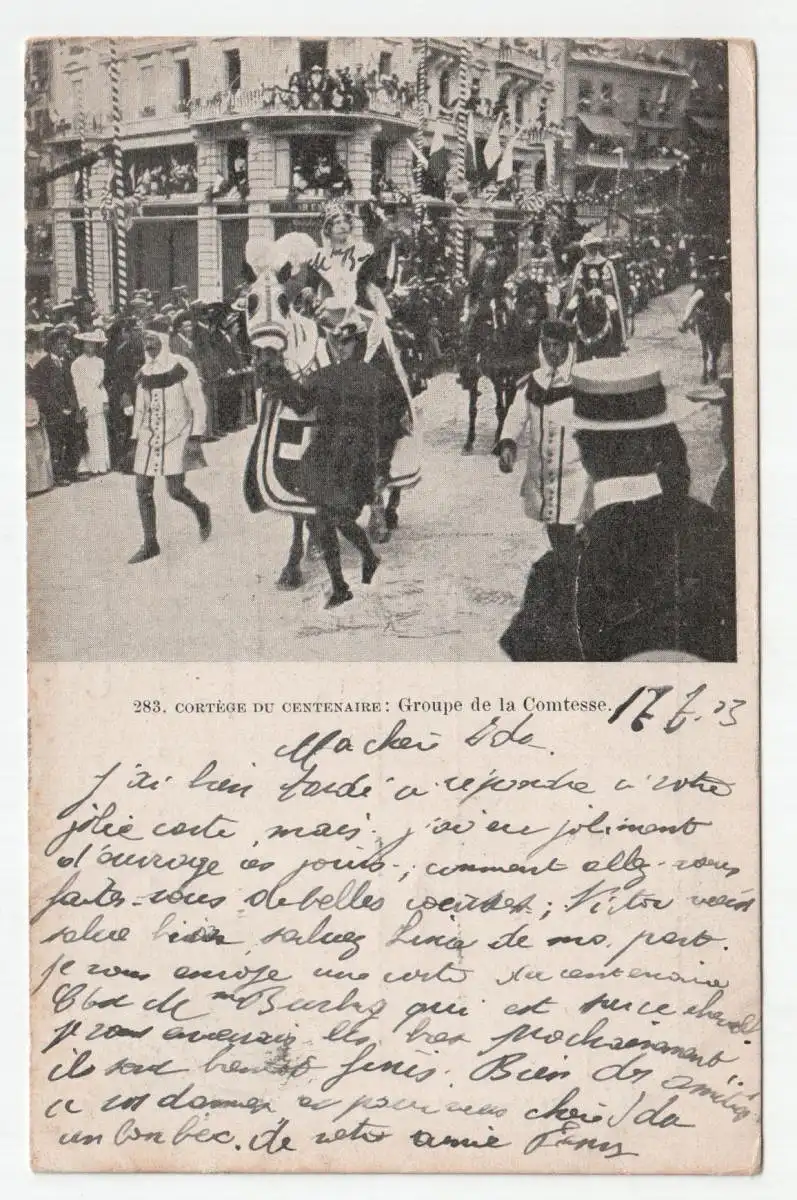 Mme B
283. CORTÈGE DU CENTENAIRE: Groupe de la Comtesse. 17 7. 03
Ma chère Ida.
J'ai bien tardé a répondre a votre
jolie carte, mais j'ai eu joliment
d'ouvrage ces jours-; comment allez-vous
faites-vous de belles courses; Victor vous
salue bien saluez de ma part.
je vous envoye une carte du centenaire
C'est Mme qui est sur ce cheval
je vous enverrais les bas prochainement
ils sont bientôt finis. Bien des amitiés
a vos dames et pour vous chère Ida
un bon bec. de votre amie Fany